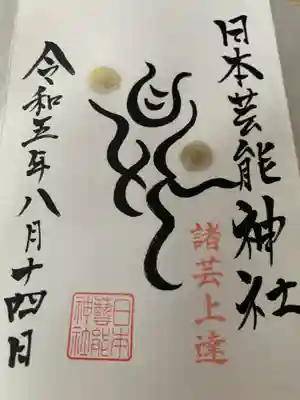 日本芸能神社
諸芸上達
令和五年八月十四日
日本
藝能
神社